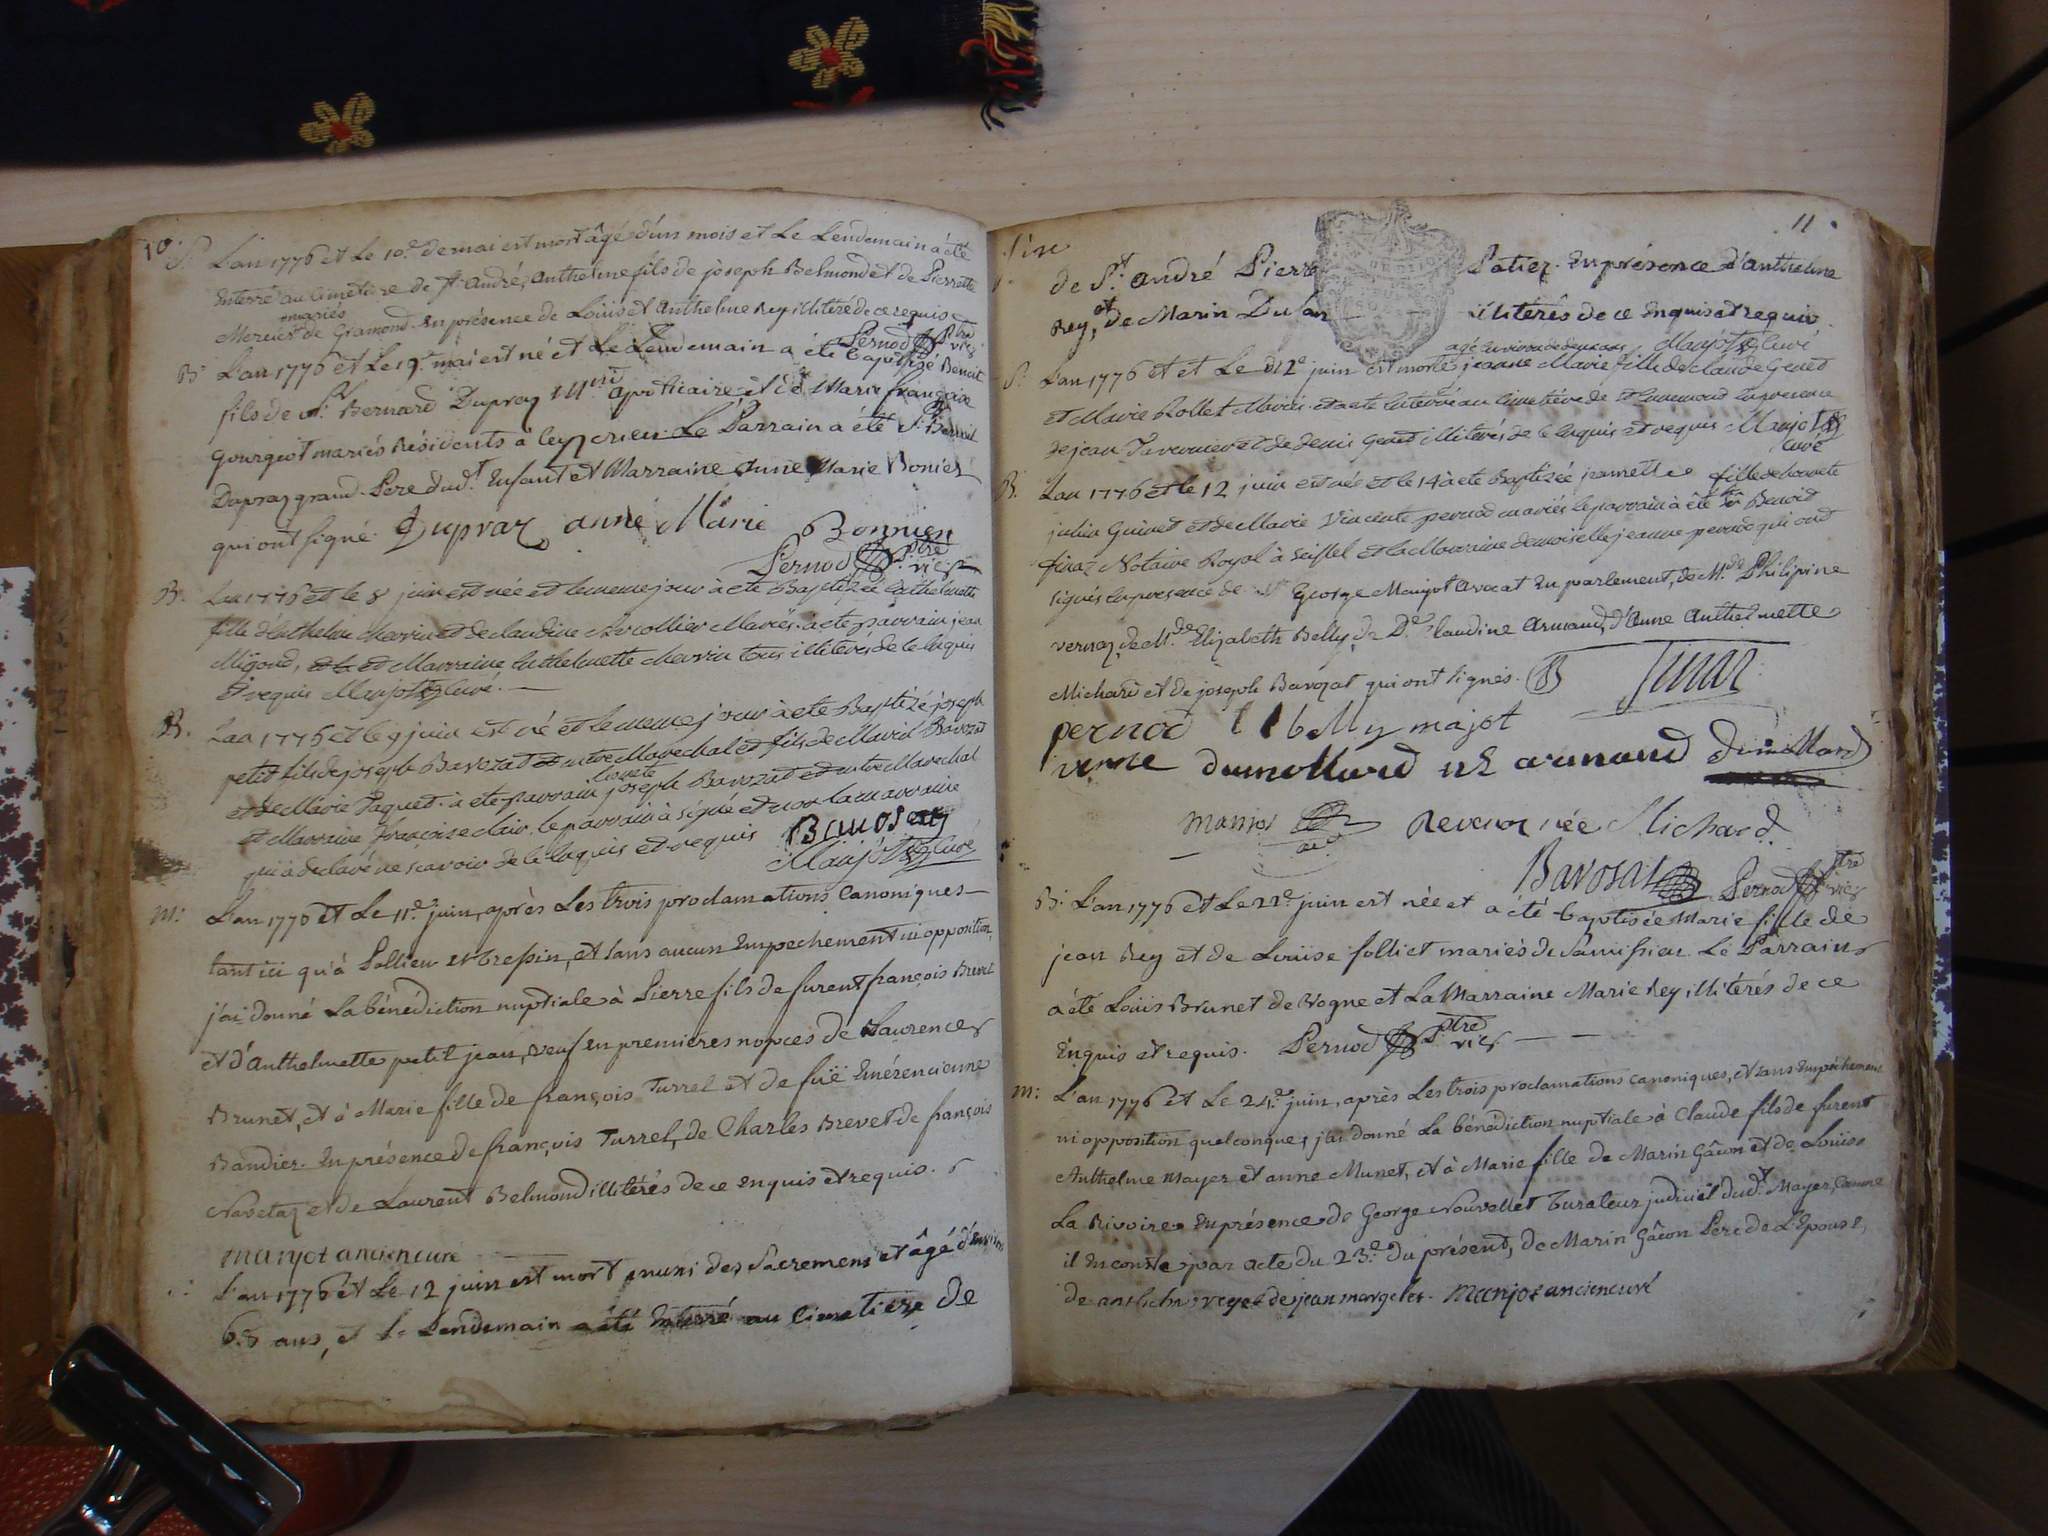 10.
S. L'an 1776 et Le 10.e de mai est mort âgé d'un mois et Le Lendemain a été
Enterré au Cimetiere de St. André, Anthelme fils de joseph Belmond et de Pierrette
mariés
Mercier de Gramond. En présence de Loüis et Anthelme Rey illiteré de ce requis
Pernod ptre vic.
B. L'an 1776 et Le 19.e mai est né et Le Lendemain a été baptisé Benoit
fils de Sr. Bernard Dupraz apoticaire et de Marie françoise
Gourgeot mariés Résidents à Leyzerieu. Le Parrain a été Sr. Benoit
Dupraz grand-Pere dudt. Enfant et Marraine Anne Marie Bonier
qui ont signé. Dupraz anne Marie Bonnier
Pernod ptre vic.
B. Lan 1776 et le 8 juin est née et le meme jour à eté Baptisée Anthelmette
fille d'Anthelme Marrin et de claudine Mariés. a ete parrain jean
Migond, et Marraine Anthelmette Marrin tous illiterés de ce Enquis
et requis Manjot curé.
B. Lan 1776 et le 9 juin est né et le meme jour à ete Baptisé joseph
petit fils de joseph Bavozat maitre Marechal et fils de Marin Bavozat
et de Marie Paquet. à ete parrain honete joseph Bavozat maitre Marechal
et Marraine françoise clair. le parrain à signé et non la marraine
qui à declaré ne scavoir de ce Enquis et requis Bavosat
Manjot curé
M: L'an 1776 et Le 11.e juin, après Les trois proclamations canoniques
tant ici qu'à Pollieu et Cressin, et sans aucun Empechement ni opposition,
j'ai donné La bénédiction nuptiale à Pierre fils de furent françois Brevet
et d'Anthelmette petit jean, veuf en premières nopces de Laurence
Brunet, et à Marie fille de françois Turrel et de füe Emérencienne
Bandier. En présence de françois Turrel, de Charles Brevet de françois
Navetaz et de Laurent Belmond illitérés de ce enquis et requis.
manjot ancien curé
L'an 1776 et Le 12 juin est mort muni des Sacremens et âgé d'Environ
68 ans, et Le Lendemain a été Enterré au Cimetiere de
11.
de St. André Pierre Patier. En présence d'Anthelme
Rey, et de Marin illitérés de ce Enquis et requis.
Manjot curé
agé environ de deux ans
S. L'an 1776 et et Le 12e juin est morte jeanne Marie fille de claude Genet
et Marie Rollet Mariés. et a ete Enterré au Cimetiére de En presence
de jean Tavernier et de denis Genet illiterés de ce Enquis et requis Manjot
curé
B. Lan 1776 et le 12 juin est née et le 14 à eté Baptisée jeannette fille de honnete
julien Guinet et de Marie Vincente pernod mariés le parrain à été Mr Benoid
finaz Notaire Royal à Seissel et la Marraine demoiselle jeanne pernod qui ont
signés En presence de Sr George Manjot Avocat En parlement, de Mde. Philipine
vernaz, de Mde. Elizabeth Belly, de De. Claudine Armand, d'Anne Anthelmette
Michard et de joseph Bavozat qui ont signés. finaz
pernod belly majot
dumollard né armand dumollard
manjot Revercoz née Michard
av.
Bavosat Pernod ptre vic.
B. L'an 1776 et Le 22.e juin est née et a été baptisée Marie fille de
jean Rey et de Loüise folliet mariés de Savissieu. Le Parrain
a été Loüis Brunet de Vogne et La Marraine Marie Rey, illitérés de ce
Enquis et requis. Pernod ptre vic.
M: L'an 1776 et Le 24.e juin, après Les trois proclamations canoniques, et sans Empechement
ni opposition quelconque, j'ai donné La bénédiction nuptiale à Claude fils de furent
Anthelme Mayer et anne Munet, et à Marie fille de Marin Gâcon et de Loüise
La Rivoire. En présence de George Nouvellet Curateur judiciel dudt. Mayer, Comme
il en conste par acte du 23.e du présent, de Marin Gâcon Pere de L'Epouse,
de anthelme et de jean margeles. Manjot ancien curé